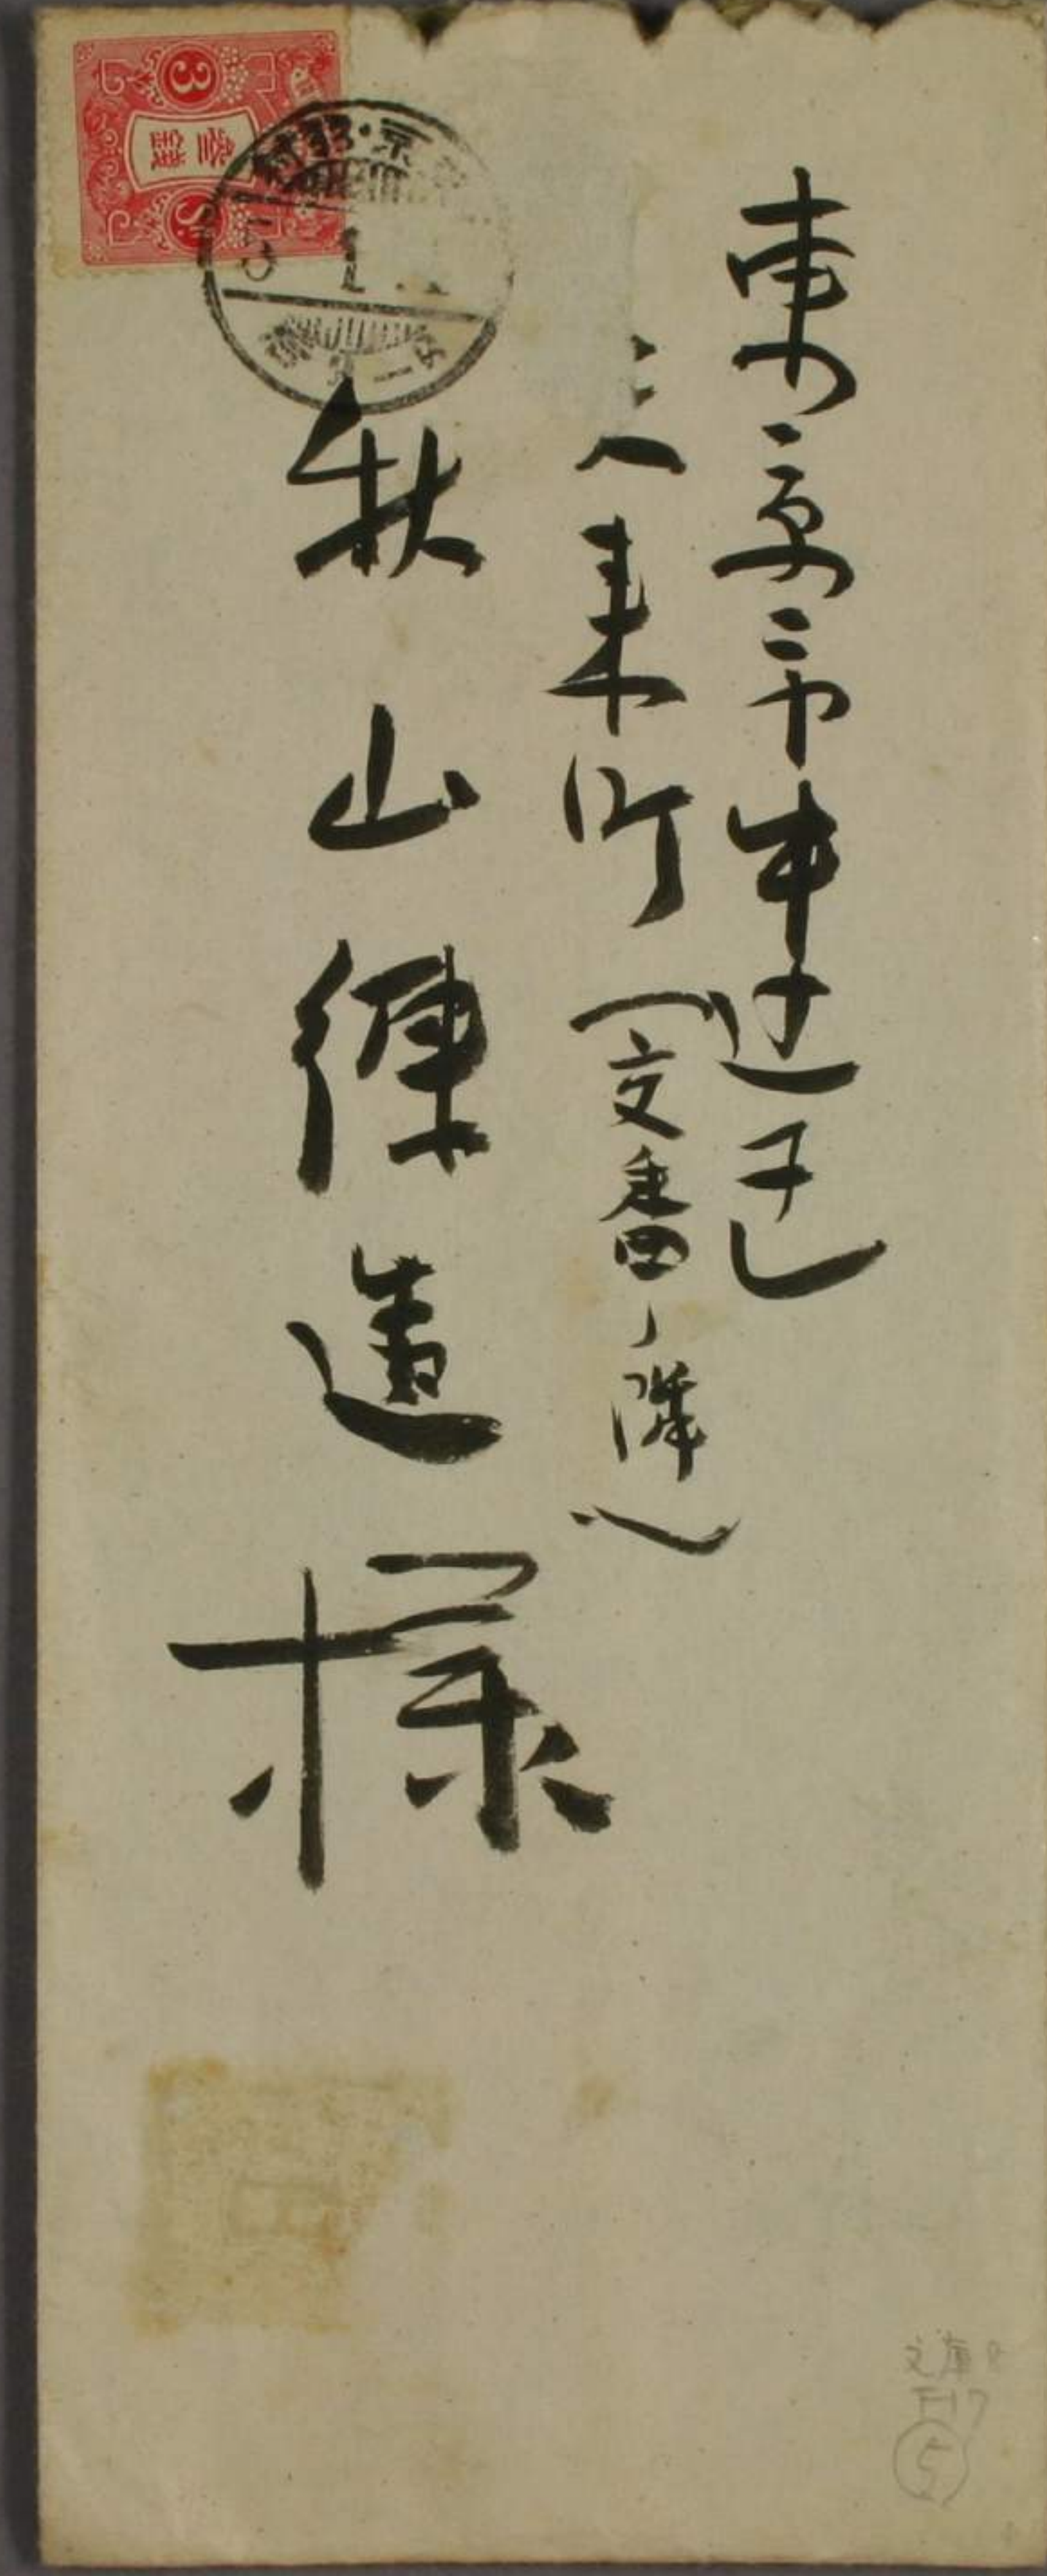 東京市牛込区
矢来町(交番ノ隣)
秋山練造様
3
参銭
文庫8
F17
5